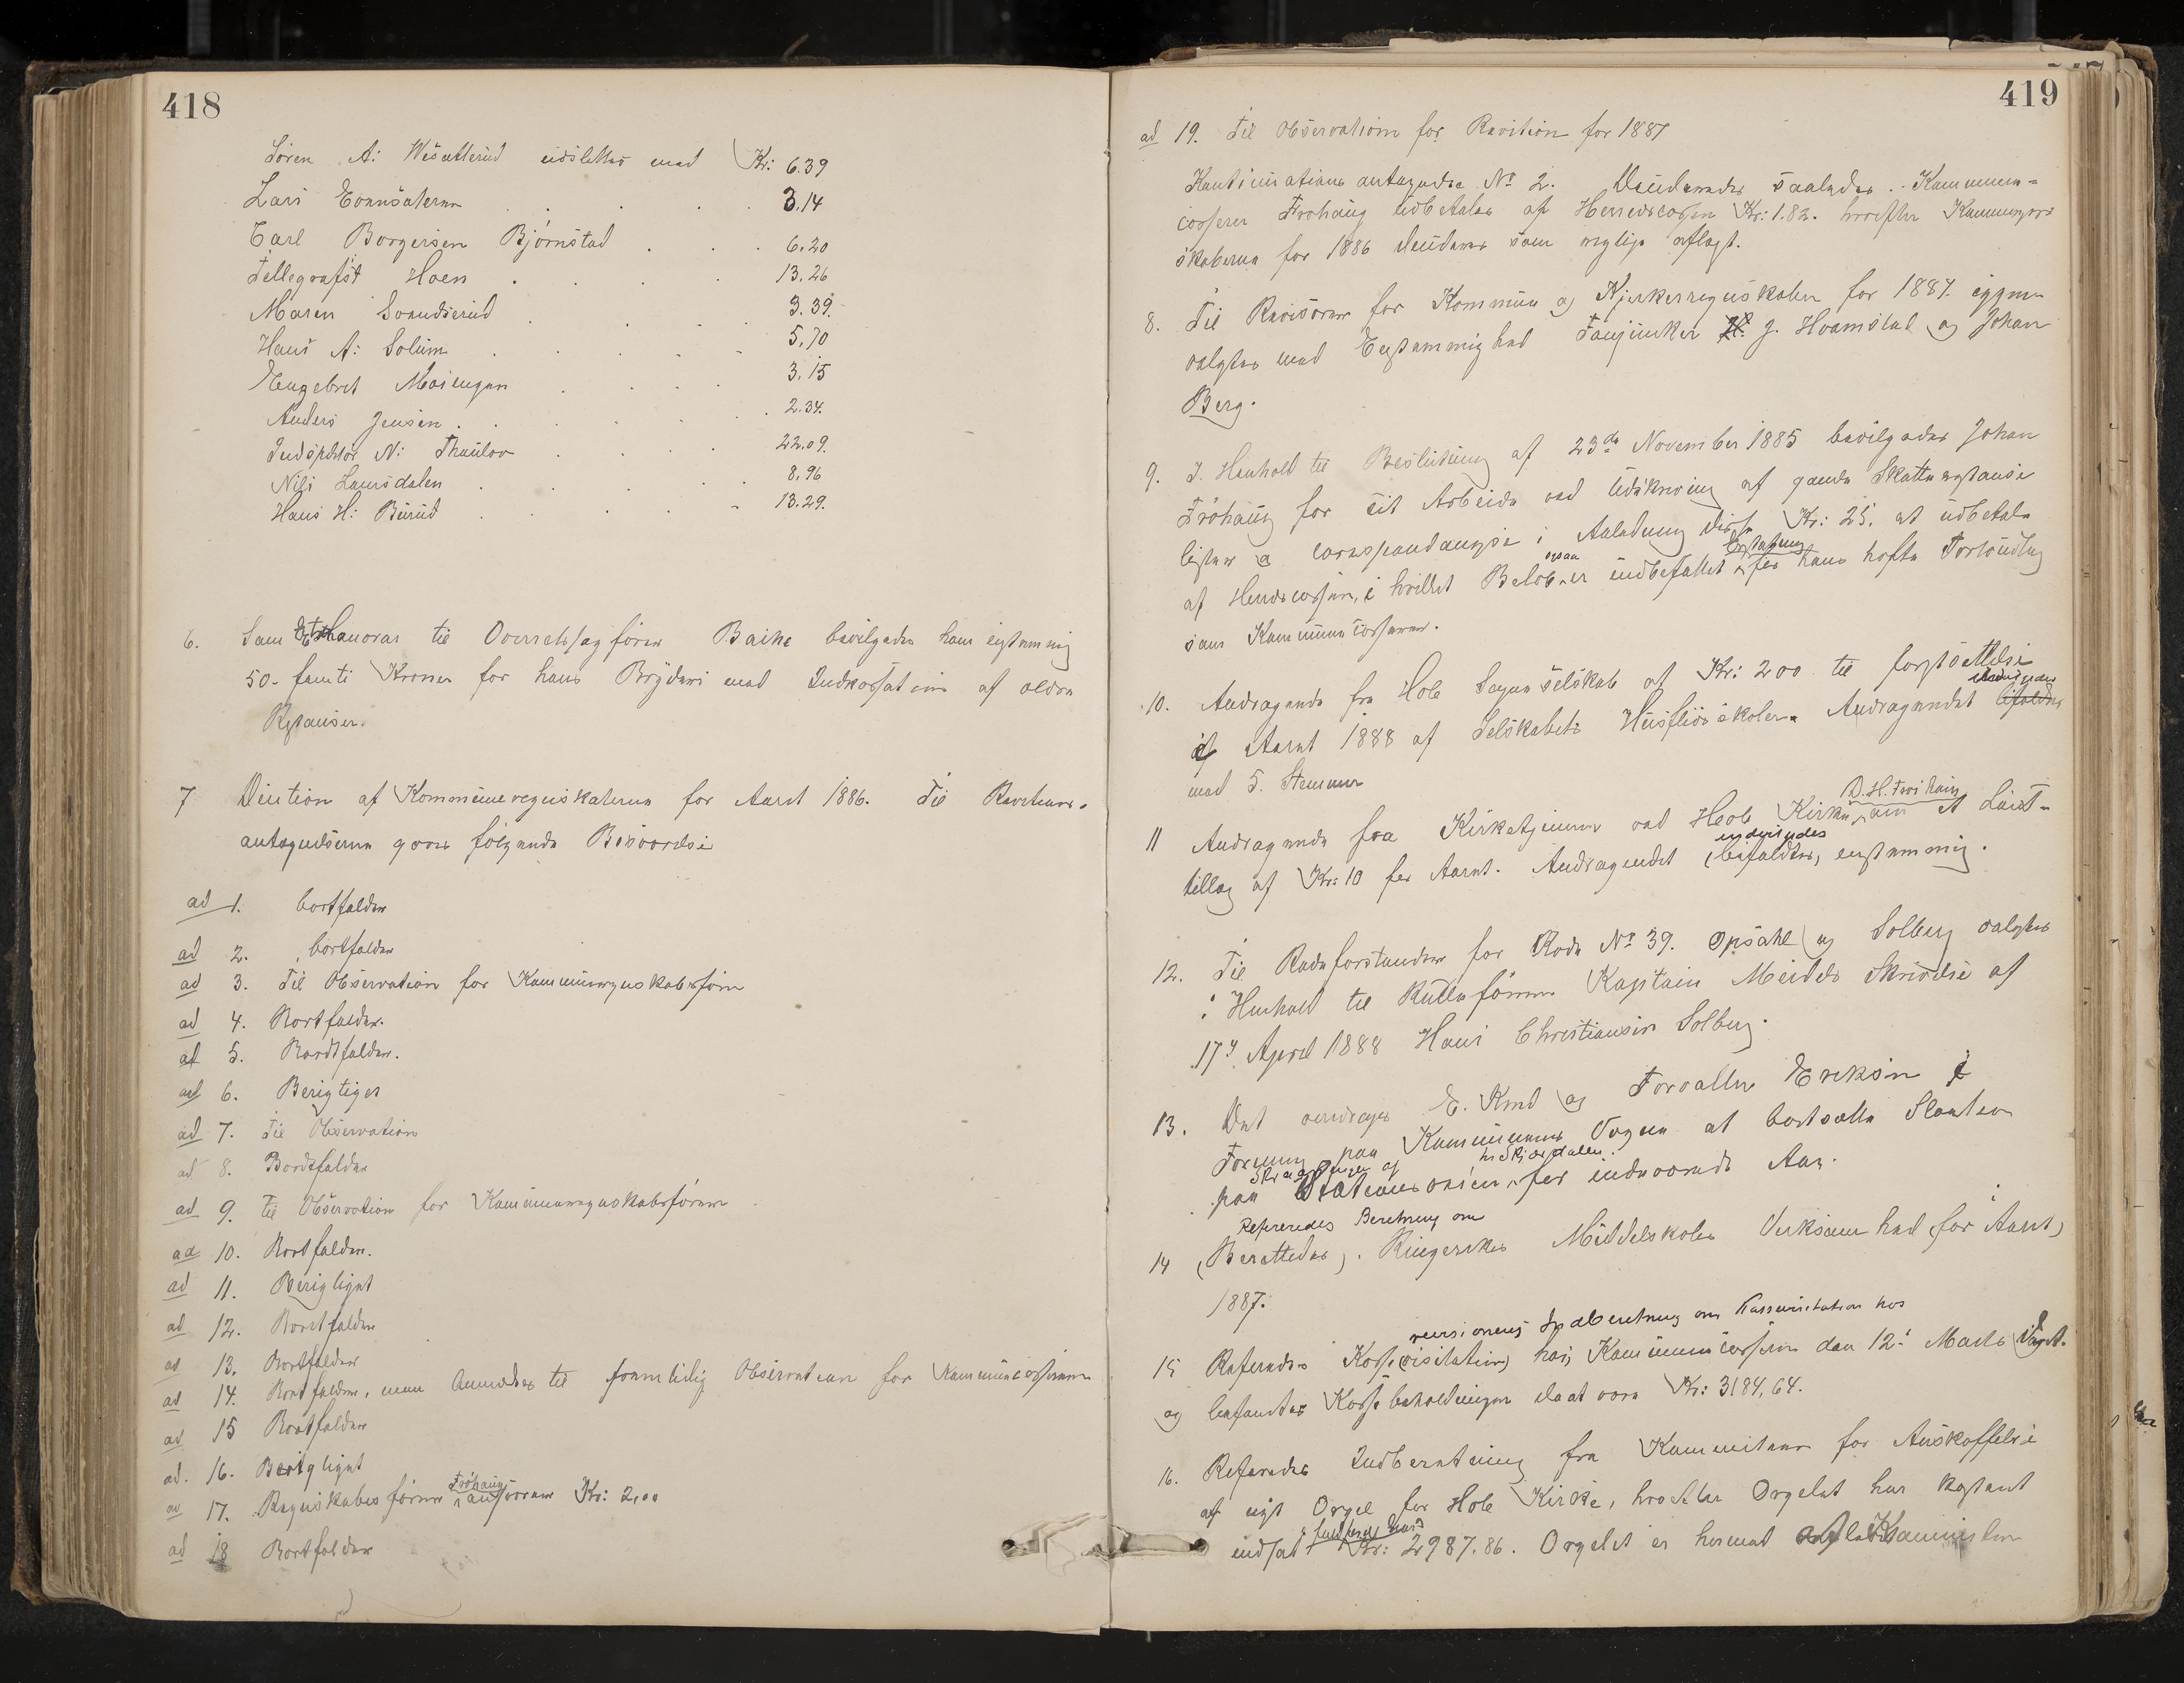 418
Sören A: Wesætterud udslettes med Kr: 6.39
Lars Svensäteren 3.14
Carl Borgersen Björnstad 6.20
Tellegrafist Hoen 13.26
Maren Svendserud 3.39.
Hans A: Solum 5,70
Engebret Moiengen 3.15
Anders Jensen 2.34.
Indspektör N: Thaulow 22.09.
Nils Lamsdalen 8,96
Hans H: Burud 13.29.
6. Som Extrahonorar til Overretssagförer Baike bevilgedes ham eenstemmig
50- femti Kroner for hans Bryderi med Indkassation af ældre
Restanser.
7 Decition af Kommuneregnskaberne for Aaret 1886. Til Revitions-
antegnelserne gives fölgende Besvarelse
ad 1. bortfalder
ad 2. bortfalder
ad 3. Til Observation for Kommuneregnskabsförer
ad 4. Bortfalder.
ad 5. Bordtfalder.
ad 6. Berigtiges
ad 7. Til Observation
ad 8. Bordtfalder
ad 9. til Observation for Kommuneregnskabsföreren
ad 10. Bortfalder.
ad 11. Berigtiget
ad 12. Bortfalder
ad 13. Bortfalder
ad 14. Bortfalder, men anmodes til fremtidig Observation for Kommunecasseren
ad 15 Bortfalder
ad. 16. Berigtiget
ad 17. Regnskabsförer Fröhaug ansvarer Kr: 2,00
ad 18 Bortfalder
419
ad 19. Til Observation for Revition for 1887
Kontinuations antegnelse No 2. Decideredes saaledes. Kommune-
casserer Fröhaug udbetales af Herredscassen Kr: 1.82. hvorefter Kommuneregn-
skaberne for 1886 decideres som rigtige aflagt.
8. Til Revisorer for Kommune og Kjerkeregnskaber for 1887. igjen-
valgtes med Eenstemmighed Fanejunker H. J. Hvamstad og Johan
Berg.
9. I Henhold til Beslutning af 23de November 1885 bevilgedes Johan
Fröhaug for sit Arbeide ved Udskrivning af gamle Skatterestanse
lister og correspondangse i Anledning disse Kr: 25, at udbetale
af Herredscassen, i hvilket Belöb ogsaa er indbefattet Erstatning for hans hafte Forsendelser
som Kommunecasserer.
10. Andragende fra Hole Sogneselskab at Kr: 200 til forstsættelse
i Aaret 1888 af Selskabets Husflidsskoler. Andragendet bifaldtes indvilgedes
med 5. Stemmer
11 Andragende fra Kirketjeneren ved Hole Kirke, D. H. Fwikaug om et Lönt-
tillæg af Kr: 10 per Aaret. Andragendet (bifaldtes) indvilgedes eenstemmig.
12. Til Rodeforstander for Rode No 39. Opsahl og Solberg valgtes
i Henhold til Rullefører Kaptain Meidels Skrivelse af
17de April 1888 Hans Christiansen Solberg.
13. Det overdrages E. Rmd og Forvalter Eriksen i
Forening paa Kommunens Vegne at bortsætte Slaatten
paa Skraaningen af Stationsveien ved Skjærdalen for indeværende Aar.
14 (Berettedes). Refereredes Beretning om Ringerikes Middelskoles Virksomhed for Aaret
1887.
15 Refereredes revisionens Indberetning om Kassevisitation hos Kasse(visitation) hos Kommunecasseren den 12te Marts d. A.
og befandtes Kassebeholdningen da at være Kr: 3184,64.
16. Refereredes Indberetning fra Kommiteen for Anskaffelse
af nyt Orgel for Hole Kirke, hvorefter Orgelet har kostet
indsat i fuldfærdig Stand Kr: 2987.86. Orgelet er hermed